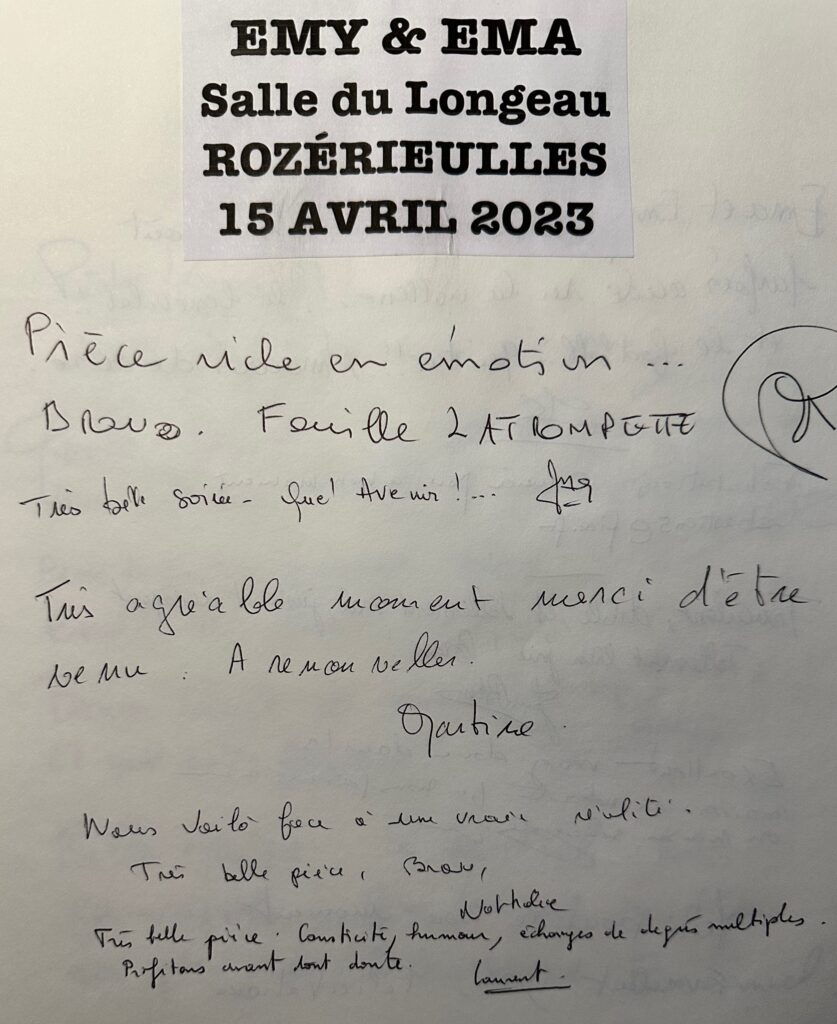 EMY & EMA
Salle du Longeau
ROZÉRIEULLES
15 AVRIL 2023
Pièce riche en émotion ...
Bravo. Famille LATROMPETTE
Très belle soirée - Quel Avenir !...
Très agréable moment merci d'être
venu. A renouveller.
Martine.
Nous voilà face à une vraie réalité.
Très belle pièce, Bravo,
Nathalie
Très belle pièce. Causticité, humour, échanges de degrés multiples.
Profitons avant tout doute.
Laurent.